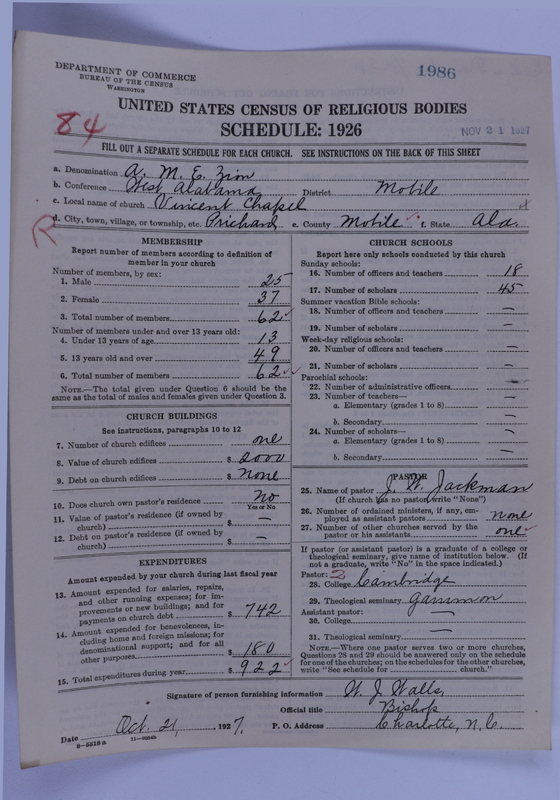 DEPARTMENT OF COMMERCE
BUREAU OF THE CENSUS
WASHINGTON
1986
UNITED STATES CENSUS OF RELIGIOUS BODIES
SCHEDULE: 1926
84
NOV 21 1927
FILL OUT A SEPARATE SCHEDULE FOR EACH CHURCH. SEE INSTRUCTIONS ON THE BACK OF THIS SHEET
a. Denomination A. M. E. Zion
b. Conference West Alabama District Mobile
c. Local name of church Vincent Chapel
R
d. City, town, village, or township, etc. Prichard e. County Mobile f. State Ala.
MEMBERSHIP
Report number of members according to definition of member in your church
Number of members, by sex:
1. Male 25
2. Female 37
3. Total number of members 62
Number of members under and over 13 years old:
4. Under 13 years of age 13
5. 13 years old and over 49
6. Total number of members 62
NOTE.—The total given under Question 6 should be
same as the total of males and females given under Question 3.
CHURCH BUILDINGS
See instructions, paragraphs 10 to 12
7. Number of church edifices one
8. Value of church edifices $ 2000
9. Debt on church edifices $ None
10. Does church own pastor's residence No
Yes or No
11. Value of pastor's residence (if owned by
church) $ —
12. Debt on pastor's residence (if owned by
church) $ —
EXPENDITURES
Amount expended by your church during last fiscal year
13. Amount expended for salaries, repairs,
and other running expenses; for im-
provements or new buildings; and for
payments on church debt $ 742
14. Amount expended for benevolences, in-
cluding home and foreign missions; for
denominational support; and for all
other purposes $ 180
15. Total expenditures during year $ 922
CHURCH SCHOOLS
Report here only schools conducted by this church
Sunday schools:
16. Number of officers and teachers 18
17. Number of scholars 45
Summer vacation Bible schools:
18. Number of officers and teachers —
19. Number of scholars —
Week-day religious schools:
20. Number of officers and teachers —
21. Number of scholars —
Parochial schools:
22. Number of administrative officers —
23. Number of teachers—
a. Elementary (grades 1 to 8)
—
b. Secondary —
24. Number of scholars—
a. Elementary (grades 1 to 8) —
b. Secondary —
PASTOR
25. Name of pastor J. W. Jackman
(If church has no pastor, write "None")
26. Number of ordained ministers, if any, em-
ployed as assistant pastors none
27. Number of other churches served by the
pastor or his assistants one
If pastor (or assistant pastor) is a graduate of a college or
theological seminary, give name of institution below. (If
not a graduate, write "No" in the space indicated.)
Pastor:
28. College Cambridge
29. Theological seminary Gammon
Assistant pastor:
30. College —
31. Theological seminary —
NOTE.—Where one pastor serves two or more churches,
Questions 28 and 29 should be answered only on the schedule
for one of the churches; on the schedules for the other churches,
write "See schedule for church."
Signature of person furnishing information W. J. Walls,
Official title Bishop
Date Oct. 21, 1927. P. O. Address Charlotte, N. C.
8-5818a 11-9864b